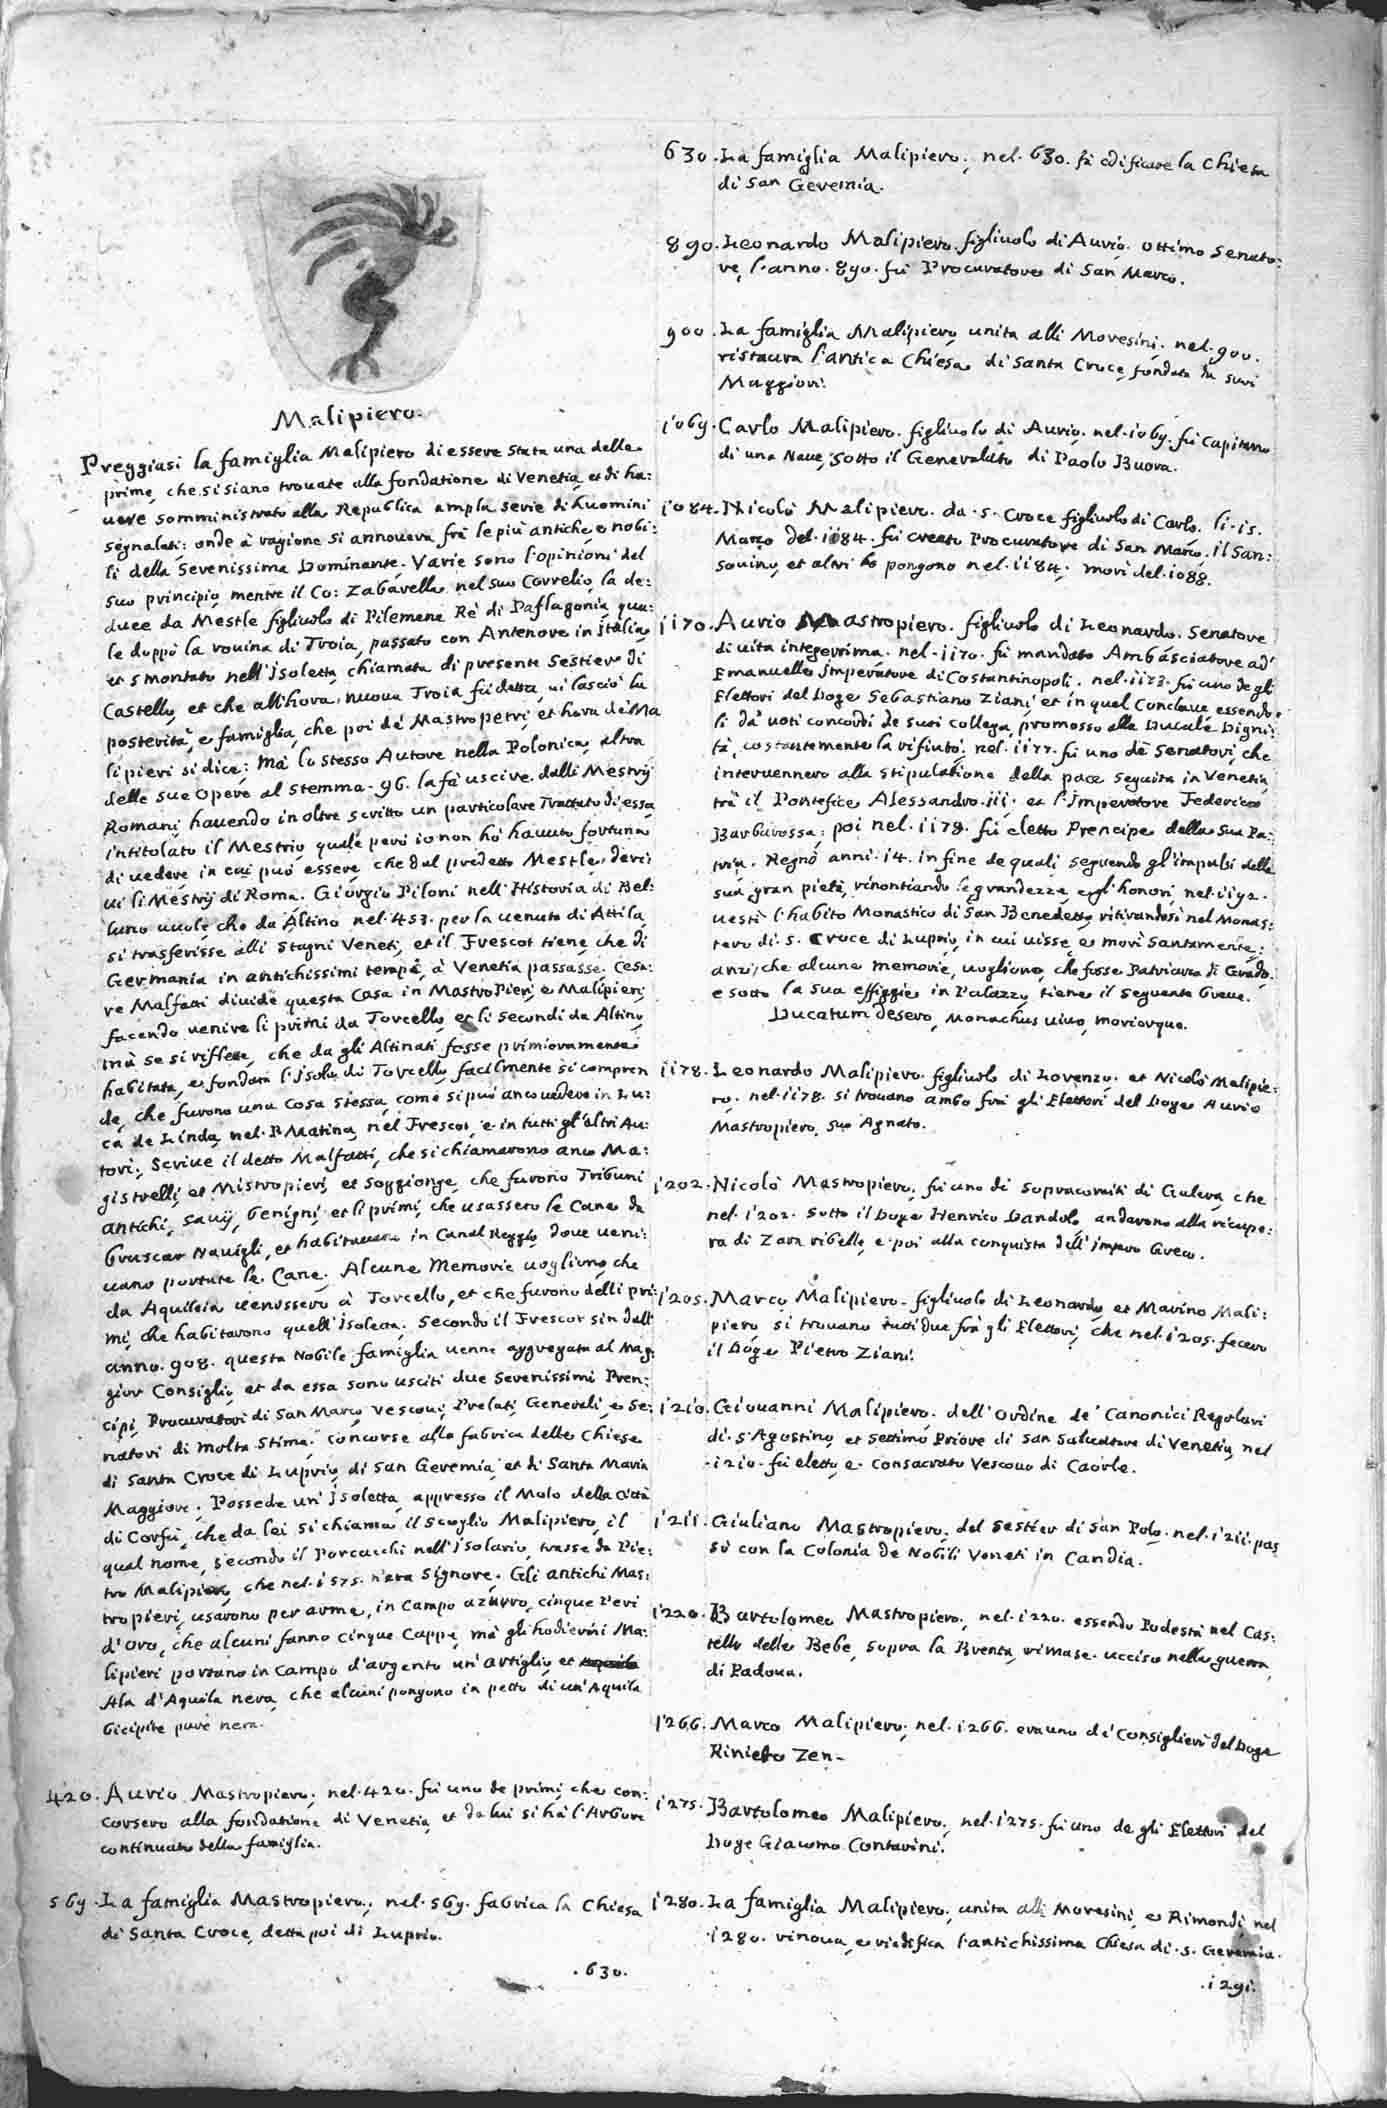 Malipiero.
Preggiasi la famiglia Malipiero di essere stata una delle
prime, che si siano trouate alla fondatione di Venetia, et di ha:
uere somministrato alla Republica ampla serie di huomini
segnalati: onde à ragione si annouera frà le più antiche, e nobi:
li della Serenissima Dominante. Varie sono l'opinioni del
suo principio, mentre il Co: Zabarella nel suo Correlio, la de:
duce da Mestle figliuolo di Pilemene Rè di Paflagonia, qua:
le doppò la rouina di Troia, passato con Antenore in Italia,
et smontato nell'Isoletta, chiamata di presente Sestiero di
Castello, et che all'hora, nuoua Troia fù detta, ui lasciò la
posterità, e famiglia, che poi de Mastropetri, et hora de Ma
lipieri si dice; mà lo stesso Autore nella Polonica, altra
delle sue Opere al stemma. 96. la fà uscire dalli Mestrij
Romani, hauendo inoltre scritto un particolare Trattato di essa,
intitolato il Mestrio, quale però io non hò hauuto fortuna
di uedere, in cui può essere, che dal predetto Mestle, deri:
ui li Mestrij di Roma. Giorgio Piloni nell'Historia di Bel:
luno uuole, che da Altino nel 453. per la uenuta di Attila,
si trasferisse alli stagni Veneti, et il Frescot tiene, che di
Germania in antichissimi tempi, à Venetia passasse. Cesa:
re Malfatti diuide questa Casa in MastroPieri, e Malipieri,
facendo uenire li primi da Torcello, et li secondi da Altino,
mà se si riflette, che da gli Altinati fosse primieramente
habitata, e fondata l'Isola di Torcello, facilmente si compren
de, che furono una cosa stessa, come si può anco uedere in Lu:
ca de Linda, nel P. Matina, nel Frescot, e in tutti gl'altri Au:
tori; scriue il detto Malfatti, che si chiamarono anco Ma:
gistrelli, et Mistropieri, et soggionge, che furono Tribuni
antichi, sauij, benigni, et li primi, che usassero le Cane da
bruscar Nauigli, et habitauano in Canal Reggio, doue ueni:
uano portate le Cane. Alcune Memorie uogliono, che
da Aquileia uenissero à Torcello, et che furono delli pri:
mi, che habitarono quell'Isoletta. Secondo il Frescot sin dall'
anno. 908. questa Nobile famiglia uenne aggregata al Mag:
gior Consiglio, et da essa sono usciti due Serenissimi Pren:
cipi, Procuratori di San Marco, Vescoui, Prelati, Generali, e Se:
natori di molta stima. Concorse alla fabrica delle Chiese
di Santa Croce di Luprio, di San Geremia, et di Santa Maria
Maggiore. Possede un'Isoletta, appresso il Molo della Città
di Corfù, che da lei si chiama il scoglio Malipiero, il
qual nome, secondo il Porcacchi nell'Isolario, trasse da Pie:
tro Malipiero, che nel. 1575. n'era Signore. Gli antichi Mas:
tropieri, usarono per arma, in Campo azurro, cinque Peri
d'oro, che alcuni fanno cinque Cappe, mà gli hodierni Ma:
lipieri portano in Campo d'argento un'artiglio, et
Ala d'Aquila nera, che alcuni pongono in petto di un'Aquila
bicipite pure nera.
420. Aurio Mastropiero, nel. 420. fù uno de primi, che con:
corsero alla fondatione di Venetia, et da lui si hà l'Arbore
continuato della famiglia.
569. La famiglia Mastropiero, nel. 569. fabrica la Chiesa
di Santa Croce, detta poi di Luprio.
. 630.
630. La famiglia Malipiero, nel. 630. fà edificare la Chiesa
di San Geremia.
890. Leonardo Malipiero figliuolo di Aurio, ottimo Senato:
re, l'anno. 890. fù Procuratore di San Marco.
900. La famiglia Malipiero, unita alli Moresini, nel. 900.
ristaura l'antica Chiesa di Santa Croce, fondata da suoi
Maggiori.
1069. Carlo Malipiero figliuolo di Aurio, nel. 1069. fù Capitano
di una Naue, sotto il Generalato di Paolo Buora.
1084. Nicolò Malipiero da S. Croce figliuolo di Carlo, li. 15.
Marzo del. 1084. fù creato Procuratore di San Marco. Il San:
souino, et altri lo pongono nel. 1184. morì del. 1088.
1170. Aurio Mastropiero figliuolo di Leonardo, Senatore
di uita integerrima, nel. 1170. fù mandato Ambasciatore ad
Emanuelle Imperatore di Costantinopoli, nel. 1173. fù uno de gli
Elettori del Doge Sebastiano Ziani, et in quel Conclaue essendo
li dà uoti concordi de suoi collega, promosso alla Ducale Digni:
tà, costantemente la rifiutò. nel. 1177. fù uno de Senatori, che
interuennero alla stipulatione della pace seguita in Venetia,
trà il Pontefice Alessandro. iii. et l'Imperatore Federico
Barbarossa; poi nel. 1178. fù eletto Prencipe della sua Pa:
tria. Regnò anni. 14. in fine de quali, seguendo gl'impulsi della
sua gran pietà, rinontiando le grandezze, e gl'honori, nel. 1192.
uestì l'habito Monastico di San Benedetto, ritirandosi nel Monas:
tero di S. Croce di Luprio, in cui uisse, e morì santamente;
anzi, che alcune memorie, uogliono, che fosse Patriarca di Grado,
e sotto la sua effiggie in Palazzo, tiene il seguente breue.
Ducatum desero, Monachus uiuo, moriorque.
1178. Leonardo Malipiero figliuolo di Lorenzo, et Nicolò Malipie:
ro, nel. 1178. si trouano ambo frà gli Elettori del Doge Aurio
Mastropiero, suo Agnato.
1202. Nicolò Mastropiero, fù uno di sopracomiti di Galera, che
nel. 1202. sotto il Doge Henrico Dandolo, andarono alla ricupe:
ra di Zara ribelle, e poi alla conquista dell'Impero Greco.
1205. Marco Malipiero figliuolo di Leonardo, et Marino Mali:
piero si trouano tutti due frà gli Elettori, che nel. 1205. fecero
il Doge Pietro Ziani.
1210. Giouanni Malipiero, dell'Ordine de' Canonici Regolari
di S. Agostino, et settimo Priore di San Saluatore di Venetia, nel
. 1210. fù eletto, e consacrato Vescouo di Caorle.
1211. Giuliano Mastropiero, del sestier di San Polo, nel. 1211. pas
sò con la Colonia de Nobili Veneti in Candia.
1220. Bartolomeo Mastropiero, nel. 1220. essendo Podestà nel Cas:
tello delle Bebe, sopra la Brenta, rimase ucciso nella guerra
di Padoua.
1266. Marco Malipiero, nel. 1266. era uno de' Consiglieri del Doge
Riniero Zen.
1275. Bartolomeo Malipiero, nel. 1275. fù uno de gli Elettori del
Doge Giacomo Contarini.
1280. La famiglia Malipiero, unita alli Moresini, e Rimondi, nel
. 1280. rinoua, e riedifica l'antichissima Chiesa di S. Geremia.
. 1291.